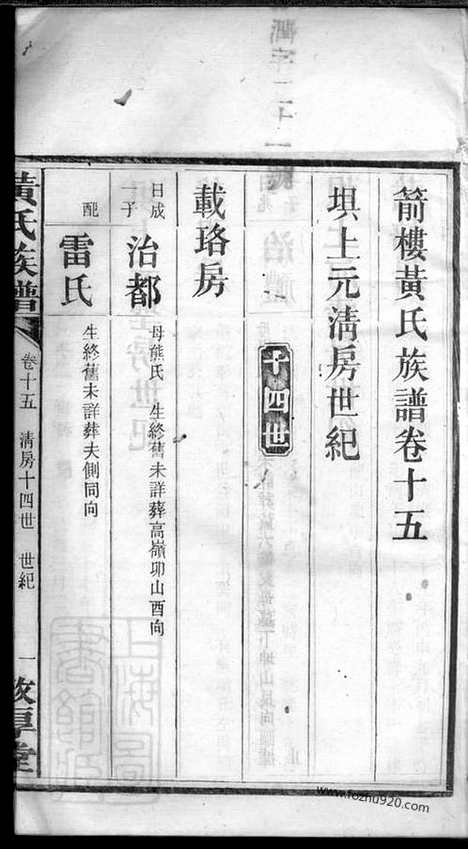 箭樓黃氏族譜卷十五
垻上元淸房世紀
十四世
載珞房
日成
一子
治都
母熊氏　生終舊未詳葬高嶺卯山酉向
配
雷氏
生終舊未詳葬夫側同向
黃氏族譜
卷十五　淸房十四世　世紀
一
敦厚堂
www.fozhu920.com